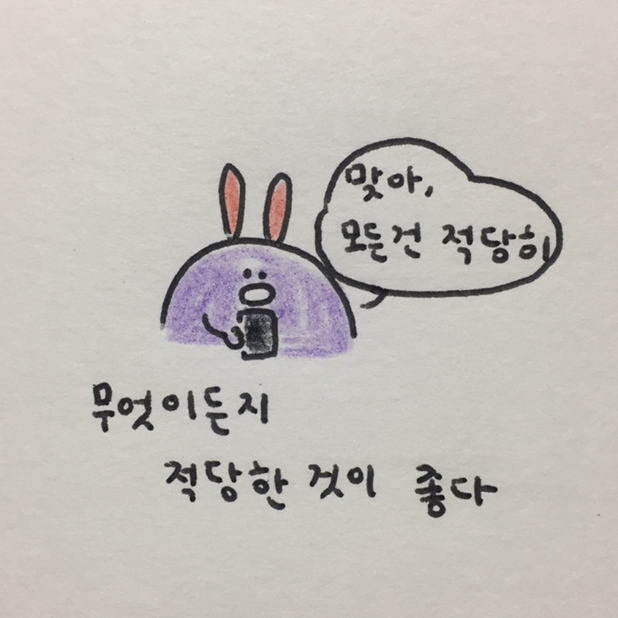 맞아,
모든건 적당히
무엇이든지
적당한 것이 좋다